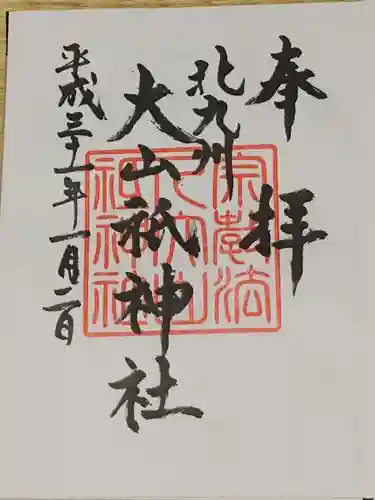 奉拝
北九州
大山祇神社
平成三十一年一月二日